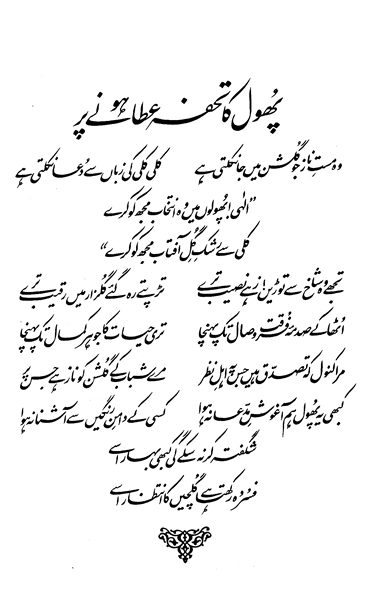 پھول کا تحفہ عطا ہونے پر
وہ مستِ ناز جو گلشن میں جا نکلتی ہے کلی کلی کی زباں سے دُعا نکلتی ہے
”الٰہی! پھولوں میں وہ انتخاب مجھ کو کرے
کلی سے رشکِ گلِ آفتاب مجھ کو کرے“
تجھے وہ شاخ سے توڑیں! زہے نصیب ترے تڑپتے رہ گئے گلزار میں رقیب ترے
اُٹھا کے صدمۂ فرقت وصال تک پہنچا تری حیات کا جوہر کمال تک پہنچا
مرا کنول کہ تصدّق ہیں جس پہ اہلِ نظر مرے شباب کے گلشن کو ناز ہے جس پر
کبھی یہ پھول ہم آغوشِ مدّعا نہ ہوا کسی کے دامنِ رنگیں سے آشنا نہ ہوا
شگفتہ کر نہ سکے گی کبھی بہار اسے
فسردہ رکھتا ہے گلچیں کا انتظار اسے